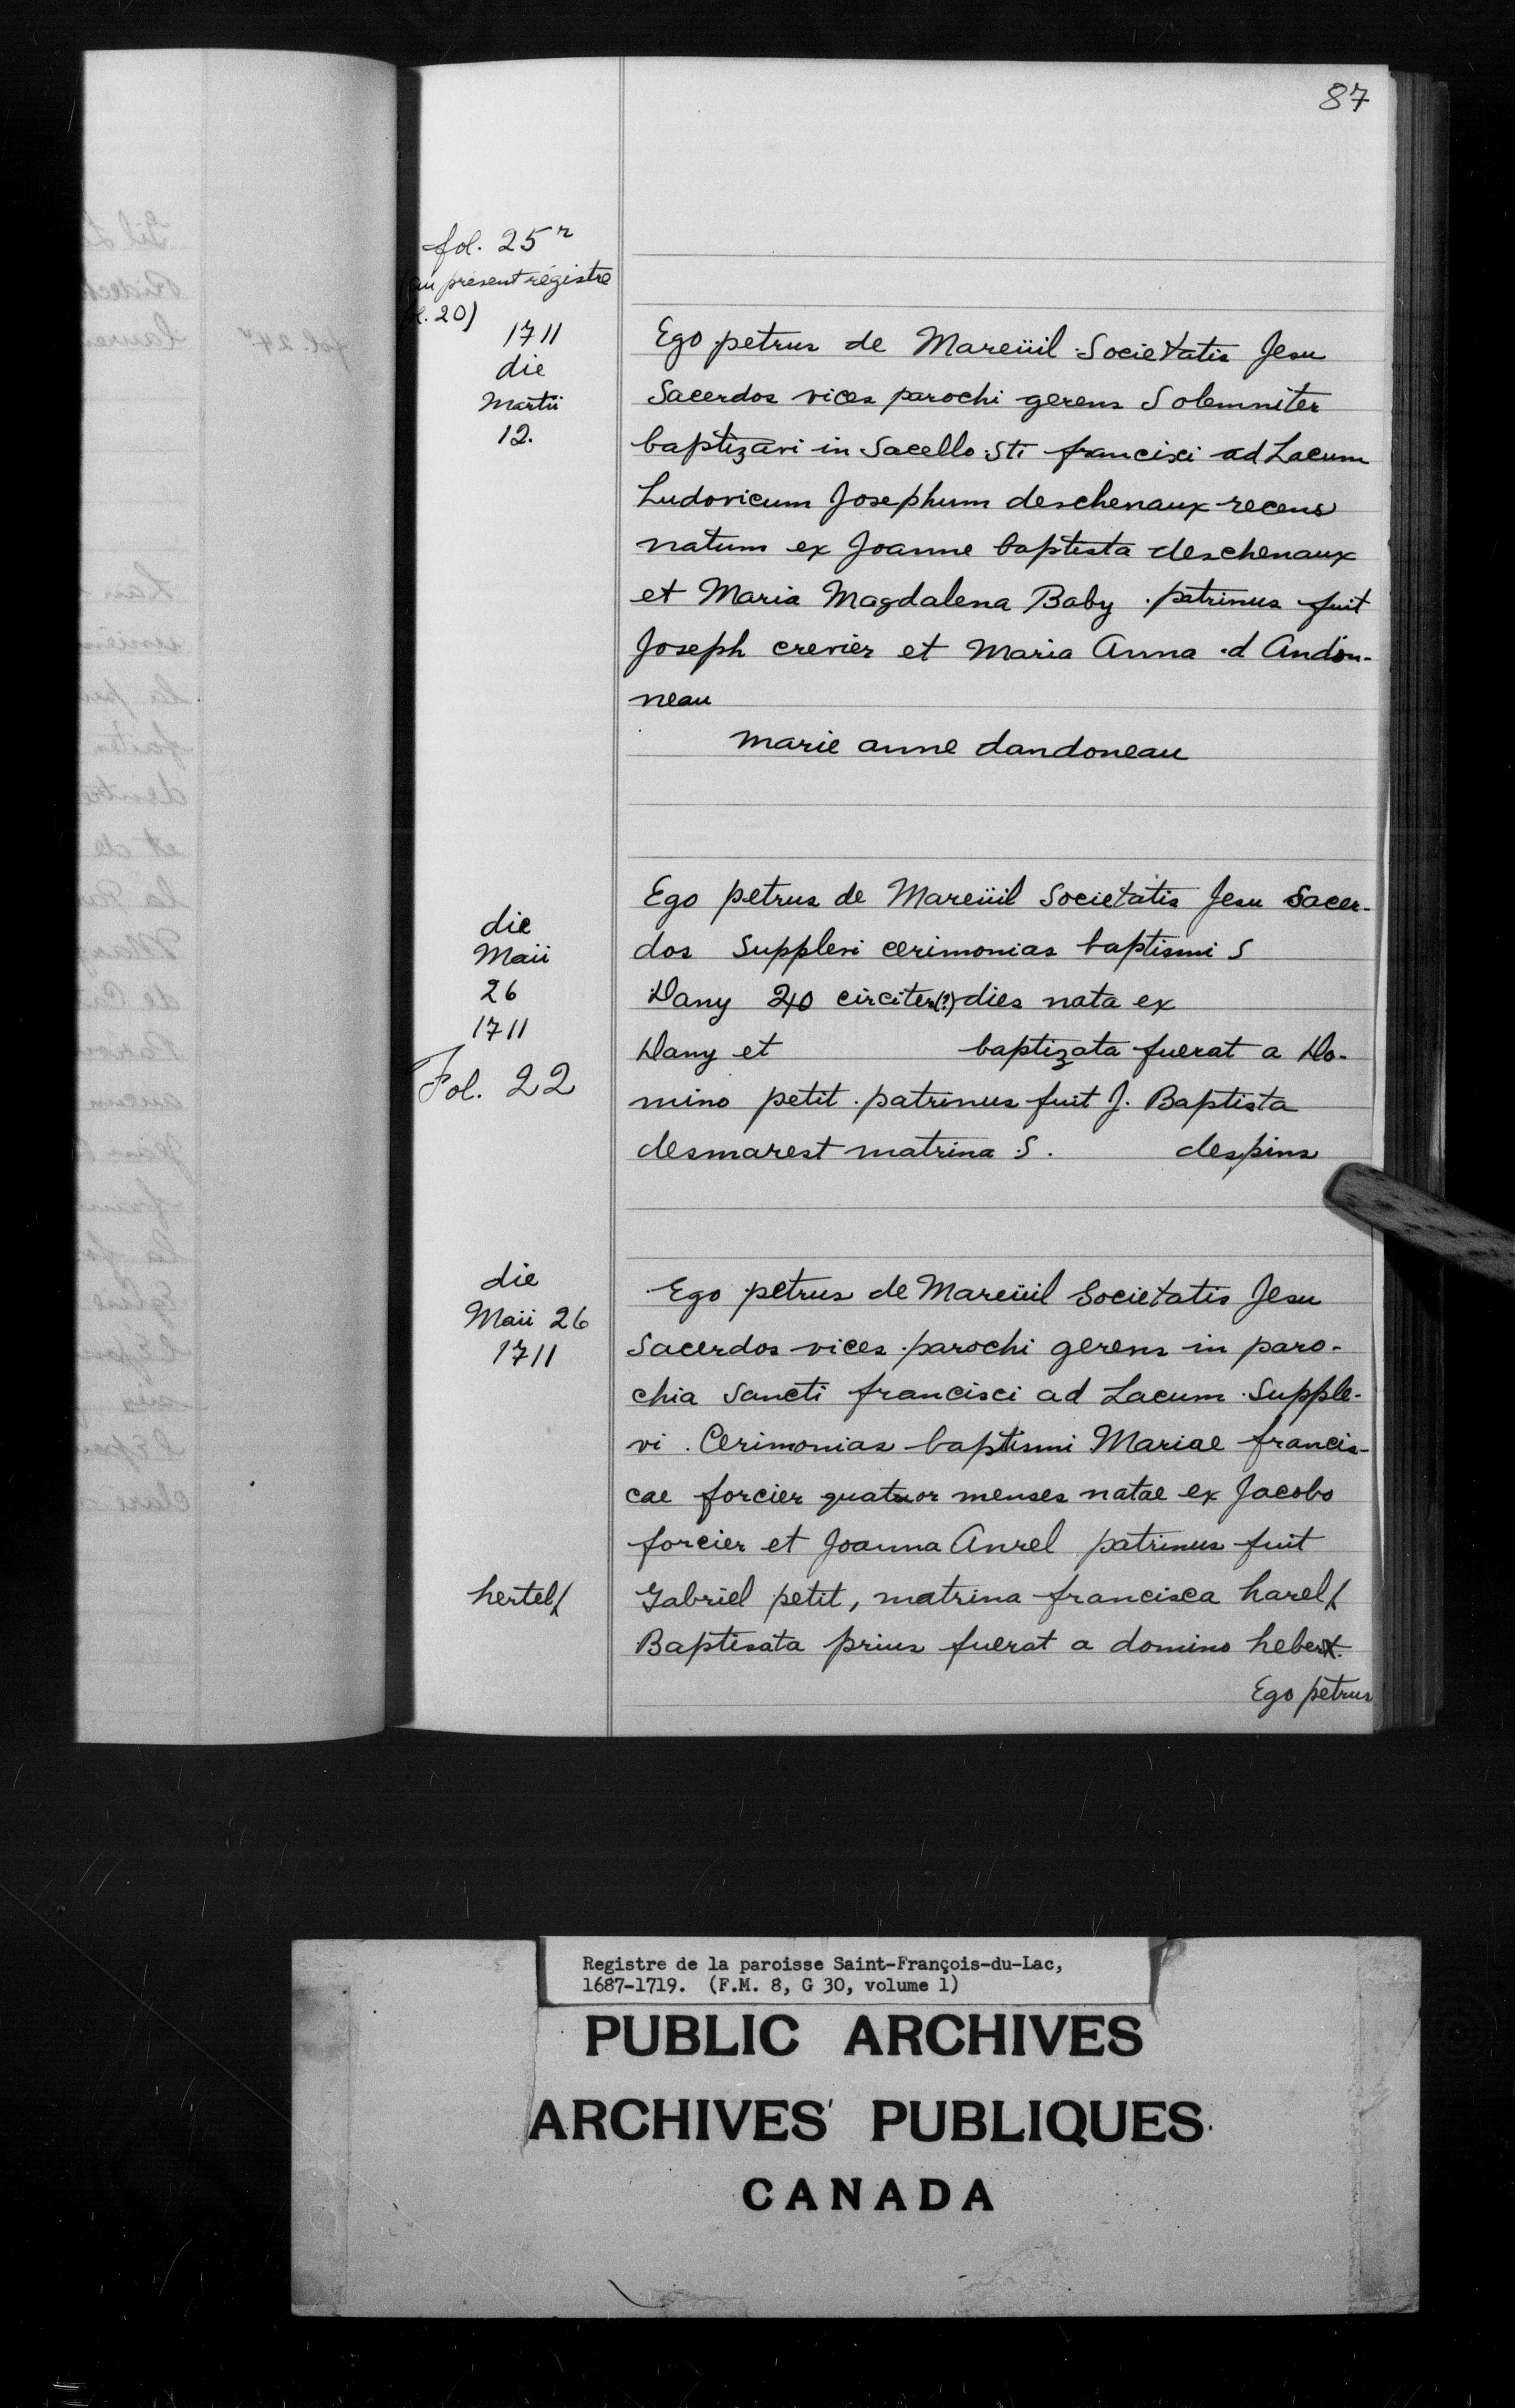 87
fol. 25r
(au présent régistre
fol. 20)
1711
die
Martii
12.
Ego petrus de Mareüil Societatis Jesu
Sacerdos vices parochi gerens Solemniter
baptizavi in Sacello Sti francisci ad Lacum
Ludovicum Josephum deschenaux recens
natum ex Joanne baptista deschenaux
et Maria Magdalena Baby. patrinus fuit
Joseph crevier et Maria Anna d Andon-
neau
marie anne dandoneau
die
Maii
26
1711
Fol. 22
Ego petrus de Mareüil Societatis Jesu Sacer-
dos Supplevi cerimonias baptismi S
Dany 240 circiter(?) dies nata ex
Dany et baptizata fuerat a Do-
mino petit. patrinus fuit J. Baptista
desmarest matrina S. despins
die
Maii 26
1711
Ego petrus de Mareüil Societatis Jesu
Sacerdos vices parochi gerens in paro-
chia Sancti francisci ad Lacum Supple-
vi. Cerimonias baptismi Mariae francis-
cae forcier quatuor menses natae ex Jacobo
forcier et Joanna Anrel patrinus fuit
hertel/
Gabriel petit, matrina francisca harel/
Baptisata prius fuerat a domino hebert.
Ego petrus
Registre de la paroisse Saint-François-du-Lac,
1687-1719. (F.M. 8, G 30, volume 1)
PUBLIC ARCHIVES
ARCHIVES PUBLIQUES
CANADA